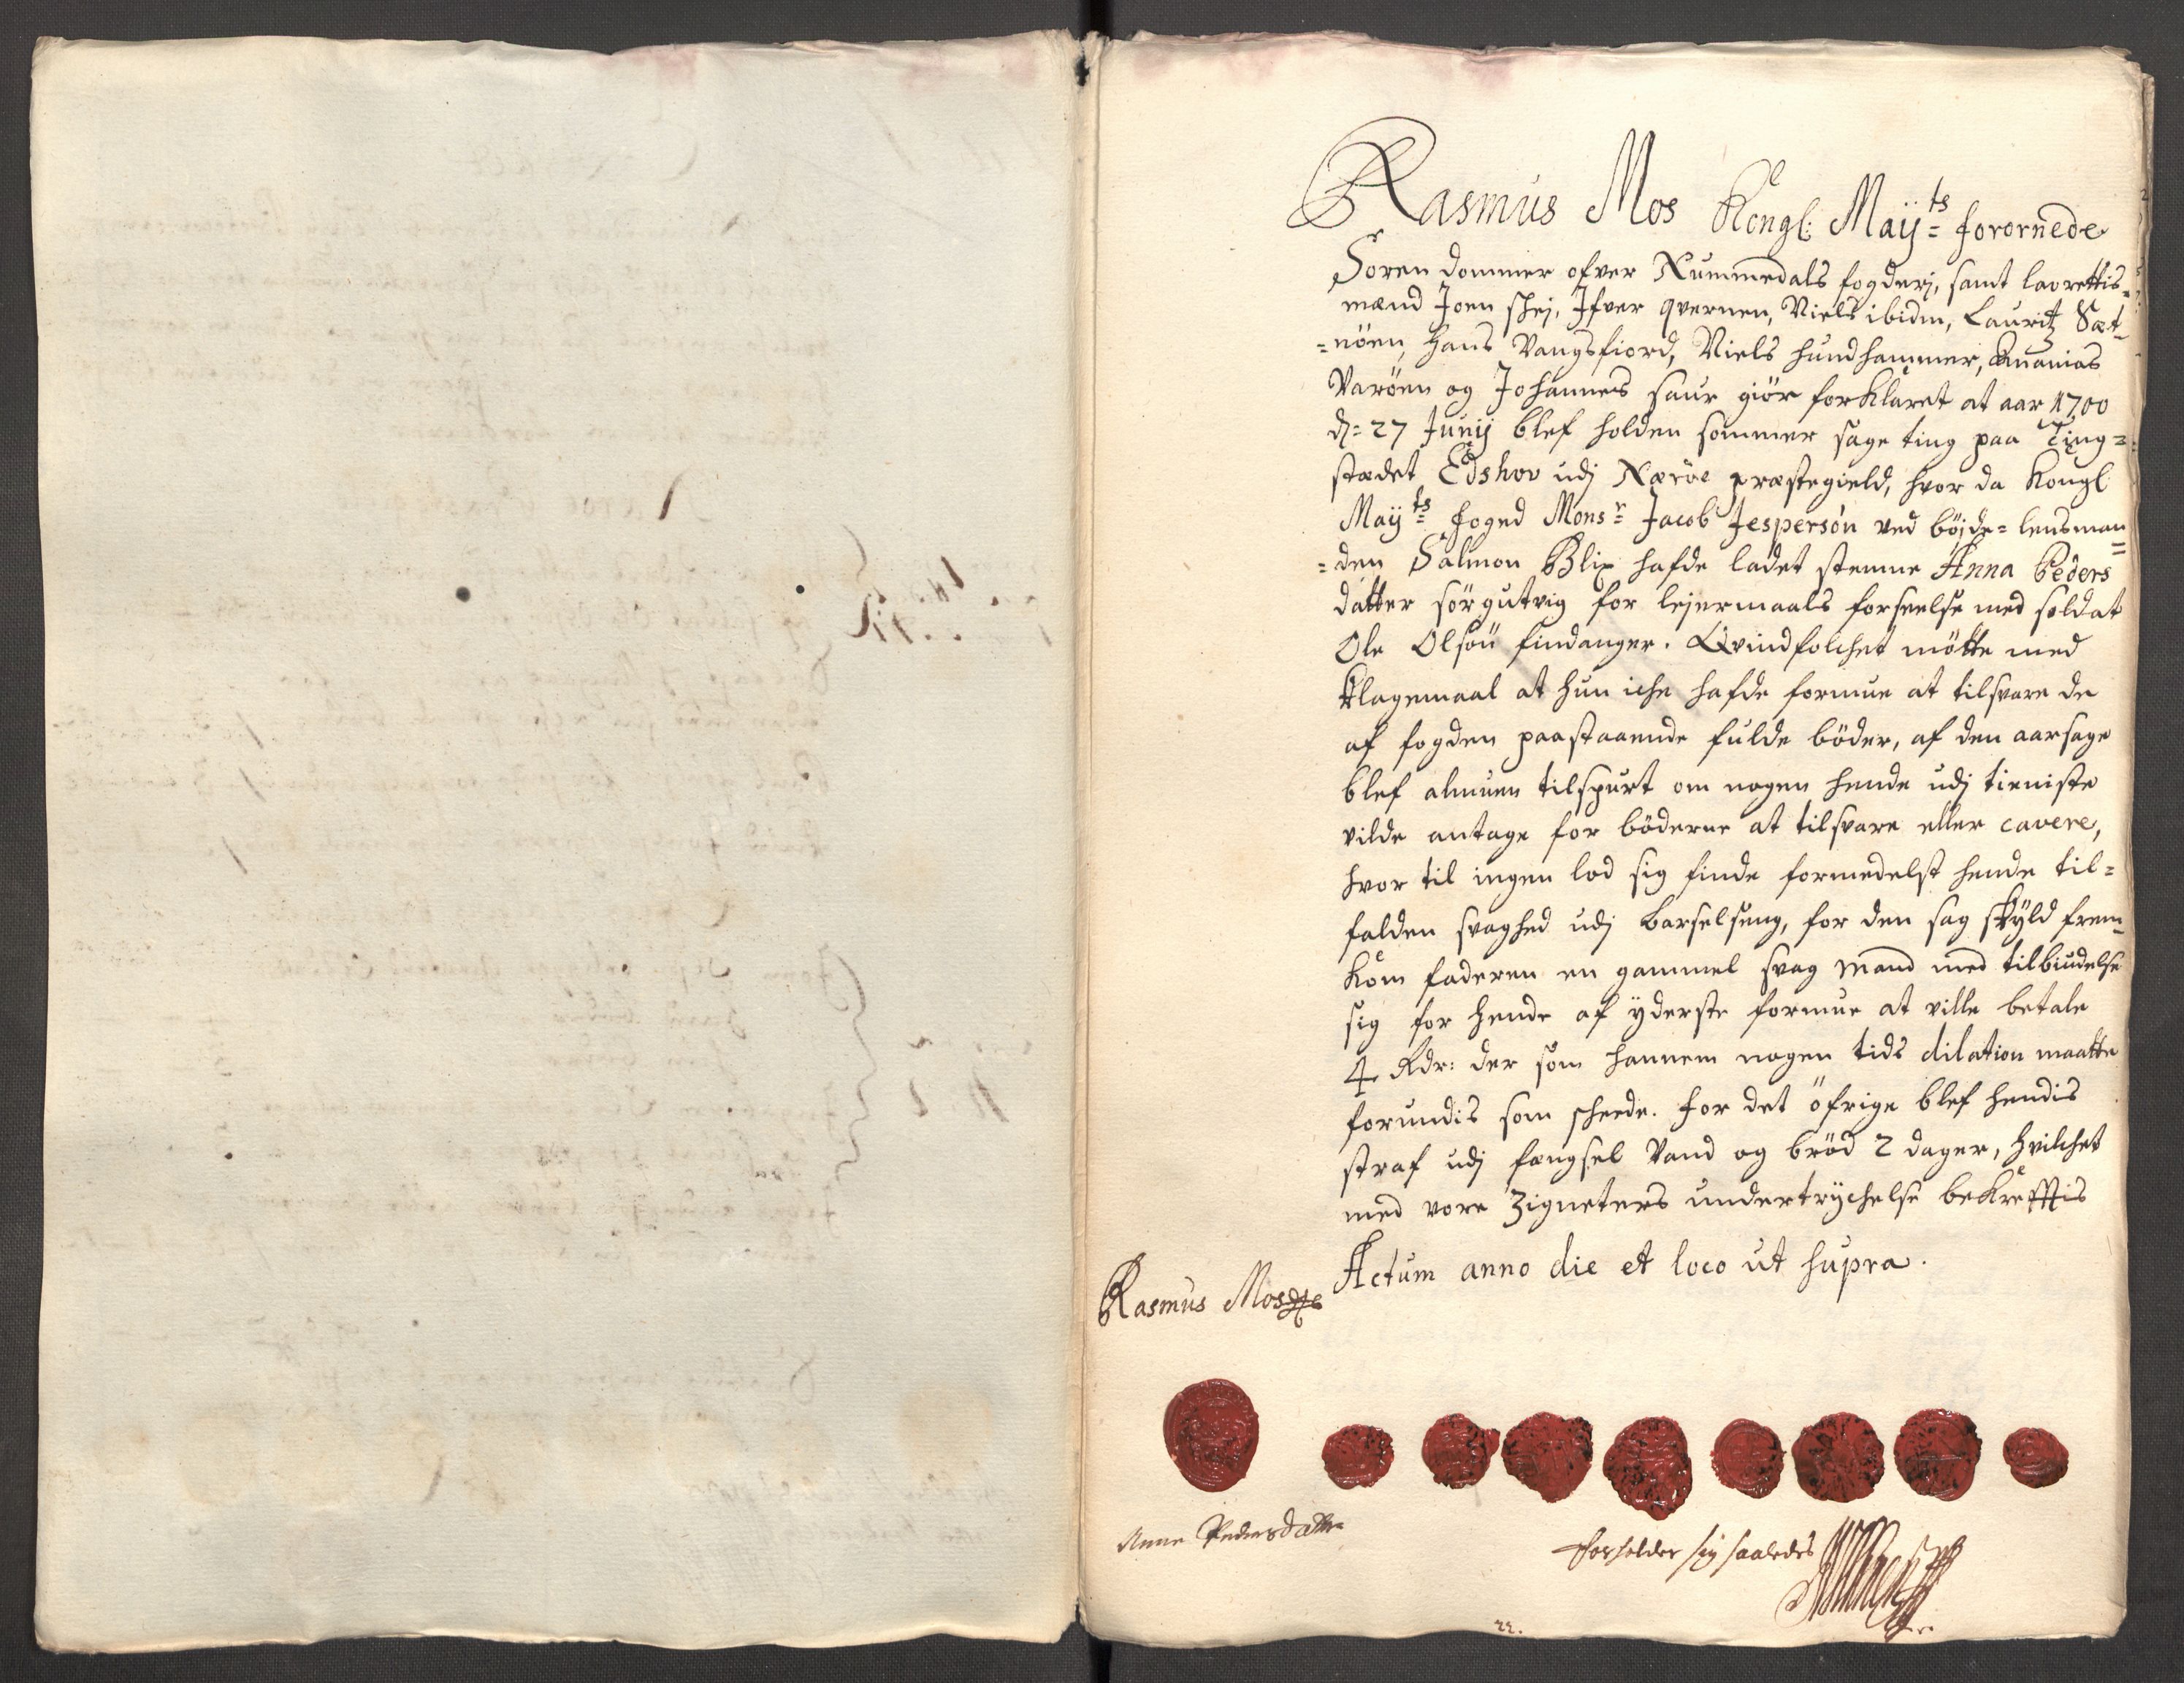 Rasmus Mos Kongl: Maÿ:ts forornede
Soren dommer ofver Nummedals fogderj, samt laorettis=
mænd Joen schej, Jfver qvernen, Niels ibidm, Lauritz Sæt=
=nöen, Hans Vangsfiord, Niels Hundhammer, Ananias
Varöen og Johannes saur giör forklaret at aar 1700
d: 27 Junij blef holden sommer sage ting paa Ting=
stædet Edshov udj Næröe præstegield, hvor da Kongl
Maÿ:ts foged Monsr: Jacob Jespersön ved böjde=lensman=
=den Salmon Blix hafde ladet stemne Anna Peders
datter sörgutvig for lejermaals forseelse med soldat
Ole Olsön findanger. Qvindfolchet mötte med
Klagemaal at hun iche hafde formue at tilsvare de
af fogden paastaaende fulde böder, af den aarsage
blef almuen tilspurt om nogen hende udj tieniste
vilde antage for böderne at tilsvare eller cavere,
hvor til ingen lod sig finde formedelst hende til=
falden svaghed udj Barselseng, for den sag skÿld frem=
kom faderen en gammel svag mand med tilbiudelse
sig for hende af ÿderste formue at ville betale
4 Rdr: der som hannem nogen tids dilation maatte
forundis som scheede. for det öfrige blef hendis
straf udj fængsel Vand og bröd 2 dager, hvilchet
med vore Zigneters undertrÿchelse bekrefftis
Actum anno die et loco ut supra.
Rasmus Mos
Anne Pedersdatter
forholder sig saaledis
22.